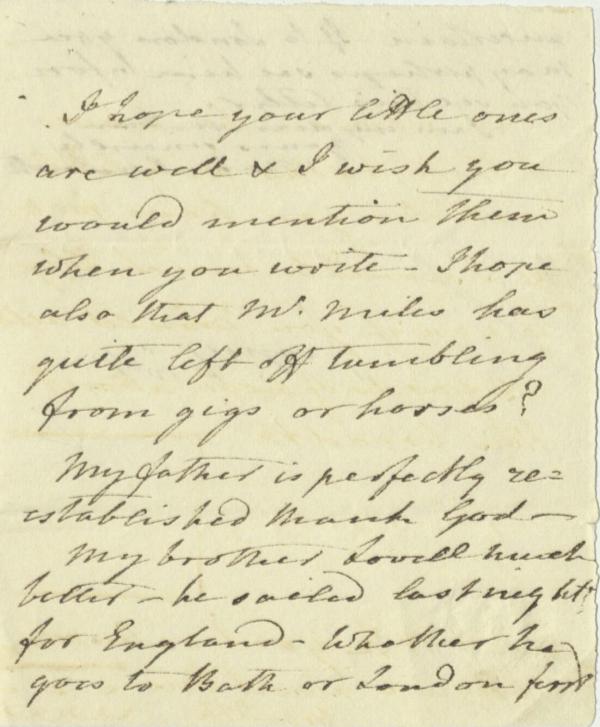 I hope your little ones
are well & I wish you
would mention them
when you write - I hope
also that Mr. Miles has
quite left off tumbling
from gigs or horses?
My father is perfectly re=
established thank God -
My brother Lovell much
better - he sailed last night
for England - Whether he
goes to Bath or London first